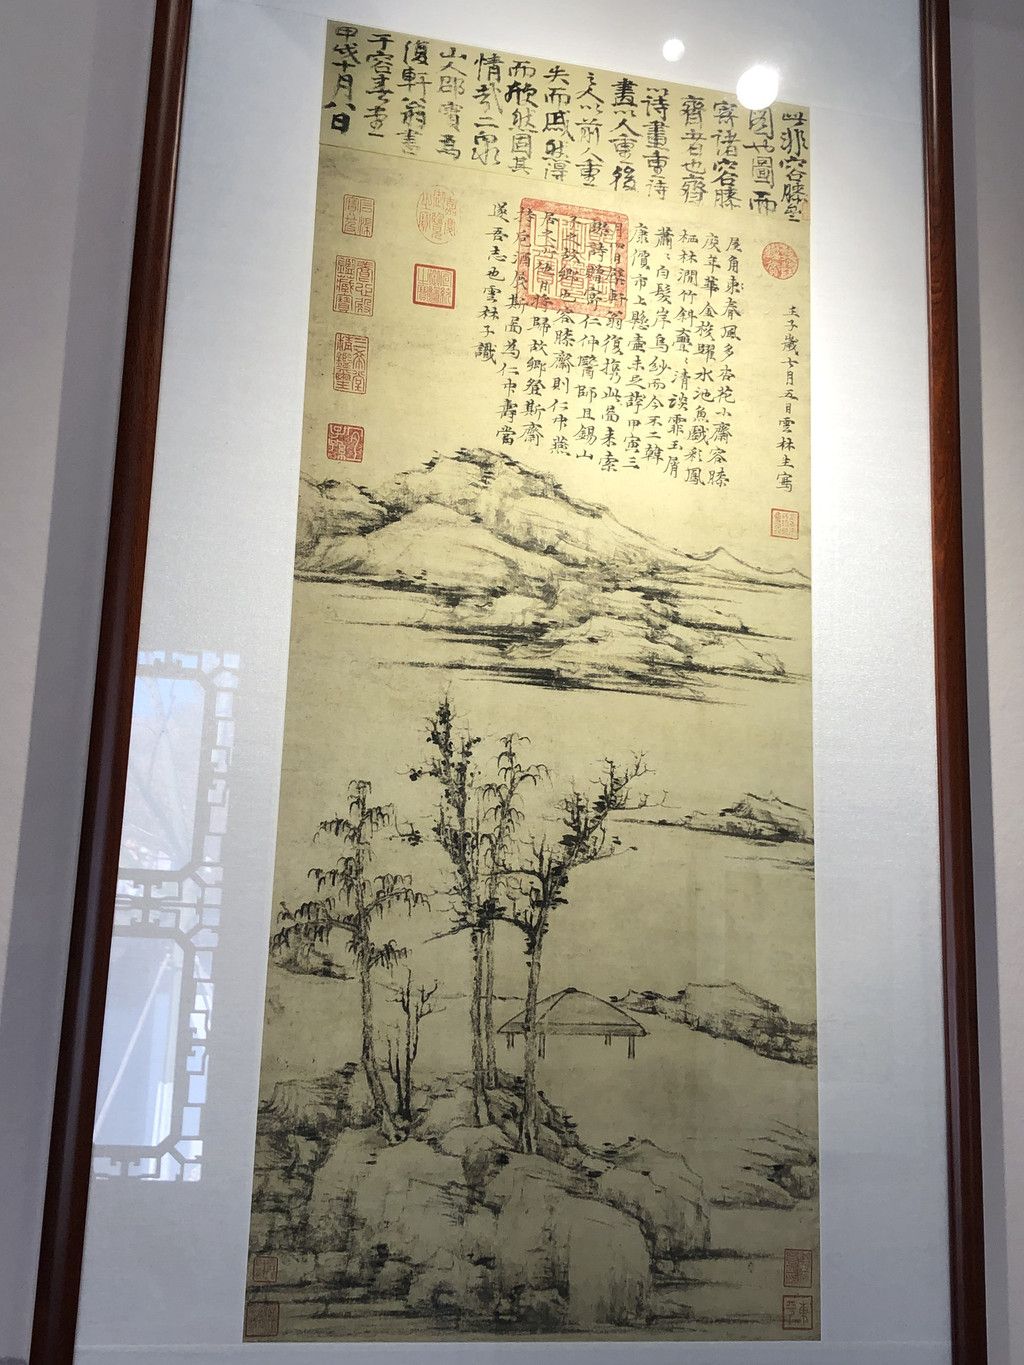 此非容膝
圖也圖而
寄諸容膝
齋者也齋
以詩畫重詩
畫以人重後
之人以前人重
失而戚然得
而欣然固其
情哉二泉
山人邵寶為
復軒翁書
于容春堂
甲戌十月八日
壬子歲七月五日雲林生寫
屋角東風多杏花小齋容膝
度年華金梭躍水池魚戲彩鳳
栖林澗竹斜亹亹清談霏玉屑
蕭蕭白髮岸烏紗而今不二韓
康價市上懸壺未足誇甲寅三
月四日檗軒翁復携此圖来索
詩贈寄仁仲醫師且錫山
予之故鄉也容膝齋則仁仲燕
居之所他日將歸故鄉登斯齋
持卮酒展斯圖為仁仲壽當
遂吾志也雲林子識